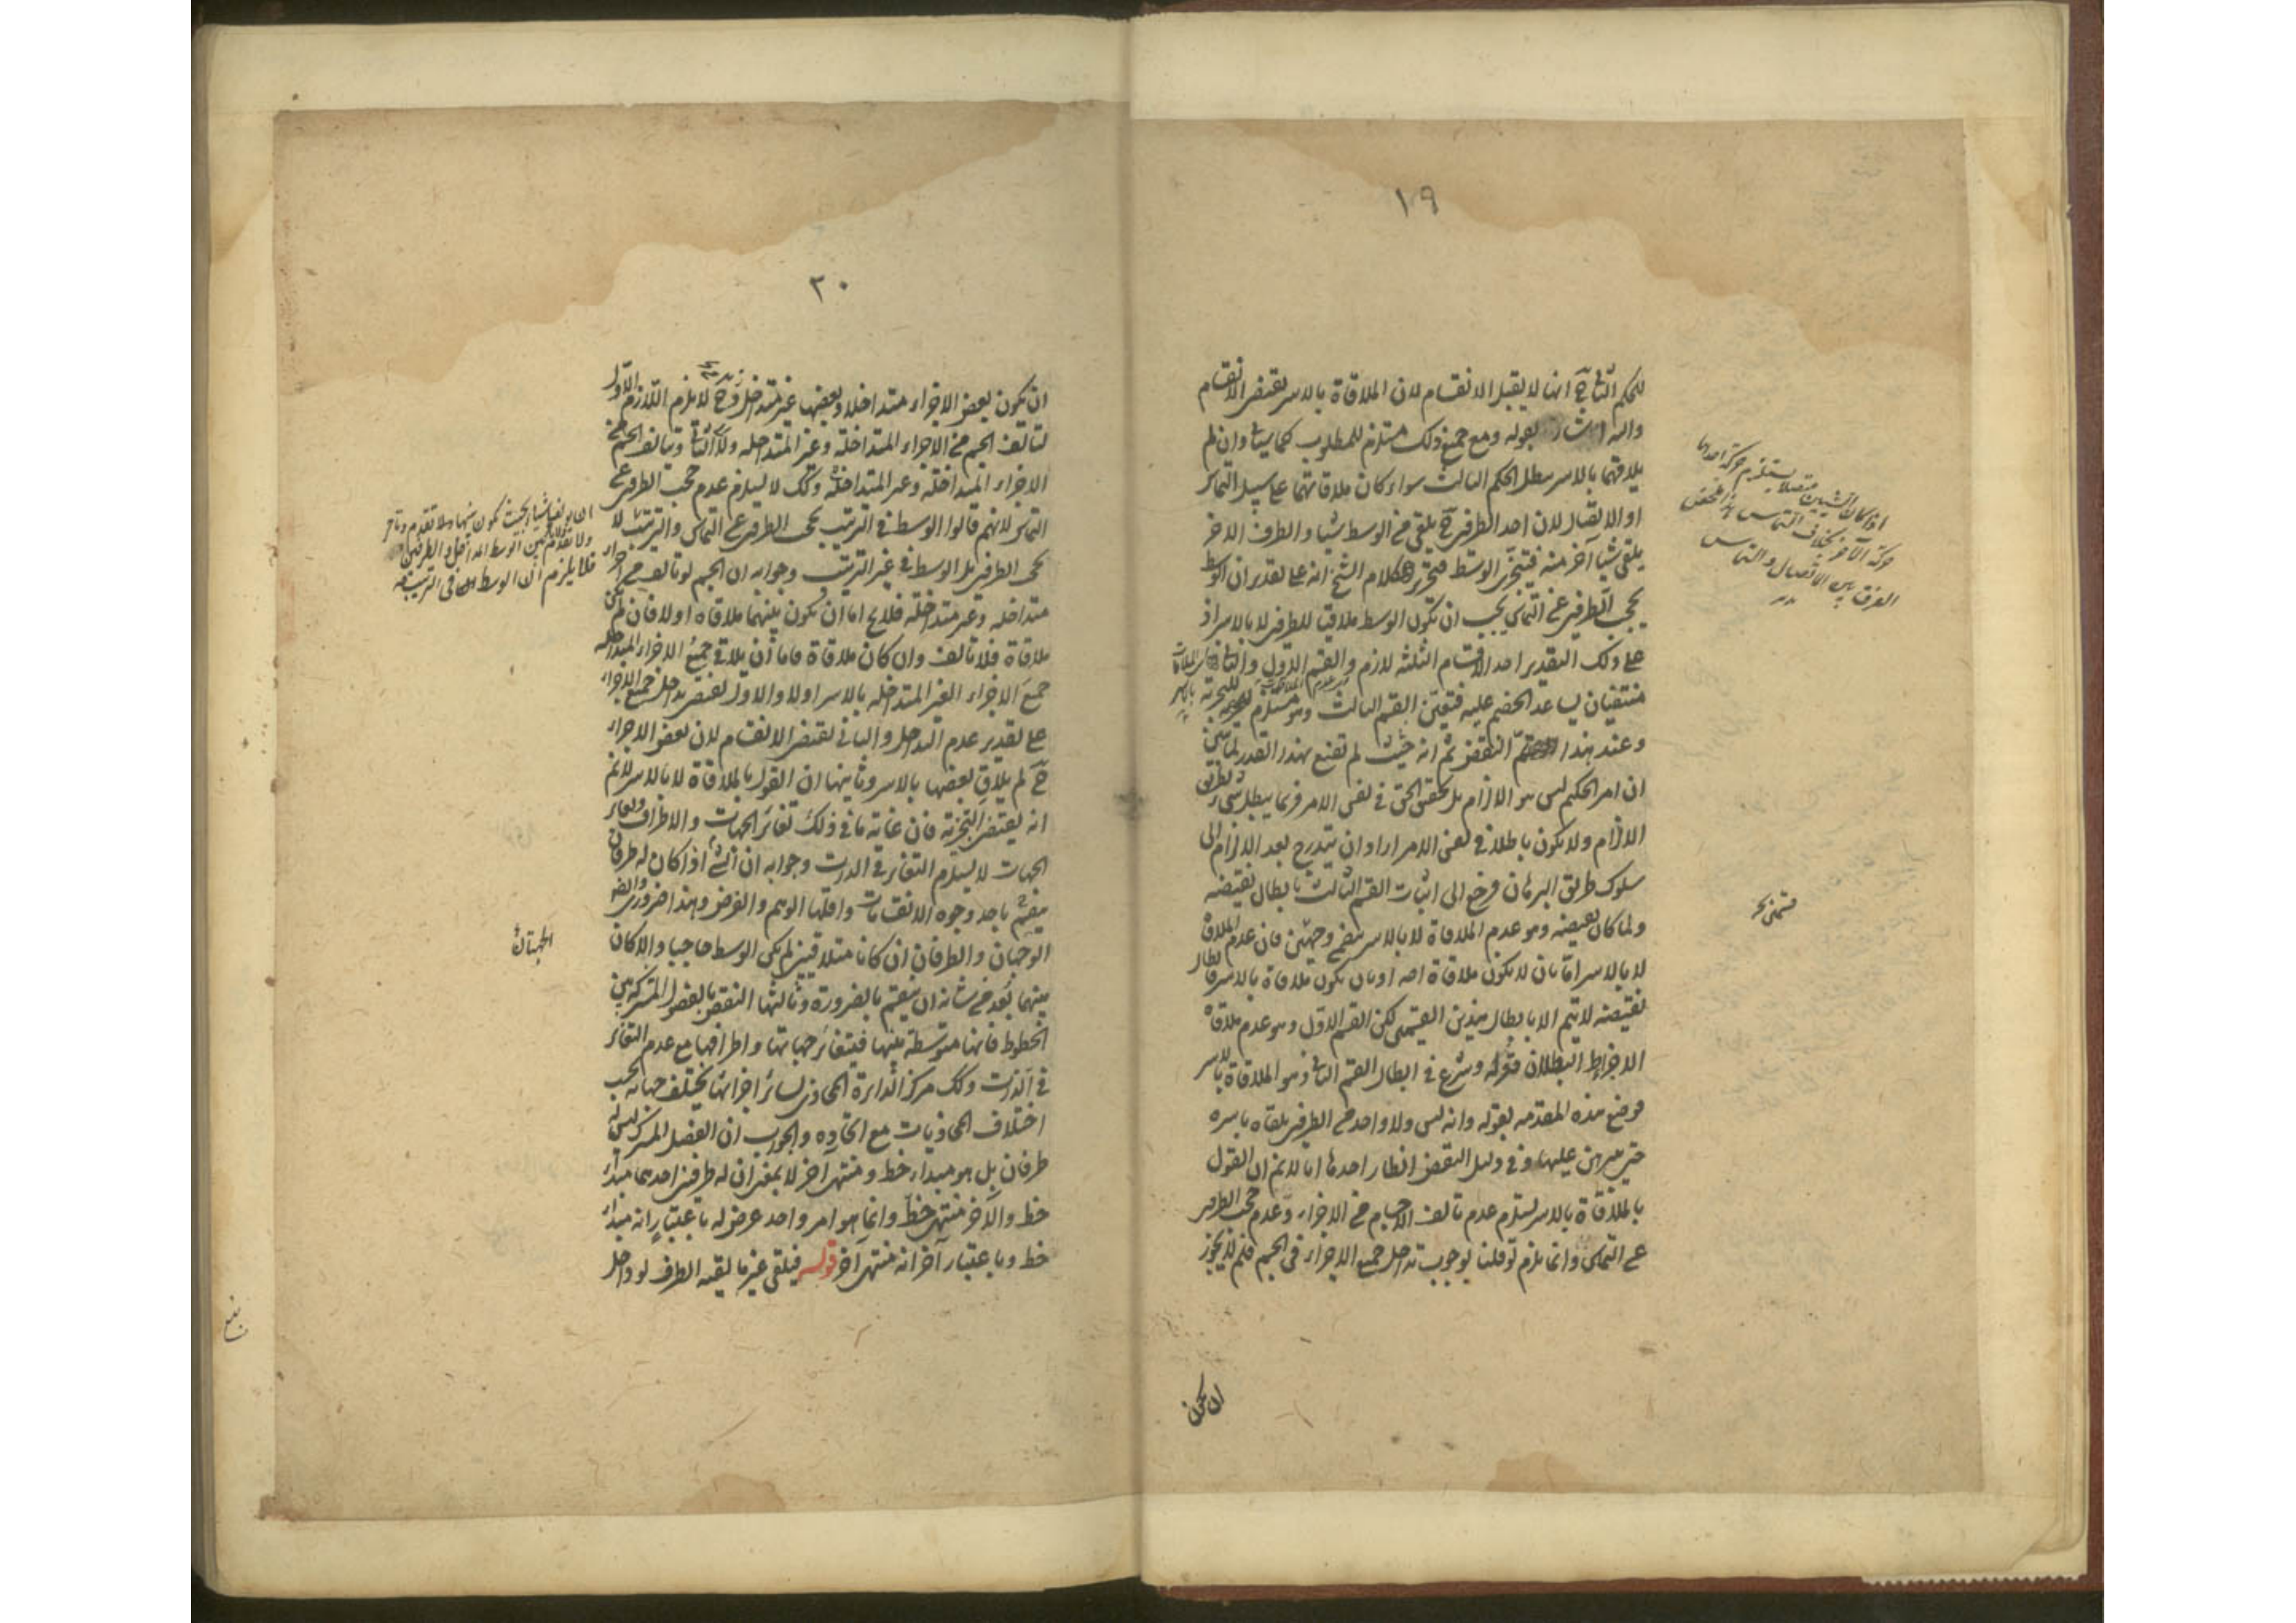 ١٩
للحكم الثانى ح انها لا يقبل الانقسام لان الملاقاة بالاسر يقتضى الانقسام
واليه اشار بقوله ومع جميع ذلك مستلزم للمطلوب كما سيأتى وان لم
يلاقهما بالاسر بطل الحكم الثالث سواء كان ملاقاتهما على سبيل التماس
او الاتصال لان احد الطرفين ح يلقى من الوسط شيئا والطرف الاخر
يلقى شيئا آخر منه فيتجزى الوسط فتحرير كلام الشيخ انه على تقدير ان الوسط
يحجب الطرفين عن التماس يجب ان يكون الوسط ملاقيا للطرفين لا بالاسر اذ
على ذلك التقدير احد الاقسام الثلثة لازم والقسم الاول والثانى
منتفيان يساعد الخصم عليه فتعين القسم الثالث وهو مستلزم للتجزية
وعند هذا تم النقض ثم انه حيث لم تقنع بهذا القدر لما تبين
ان امر الحكيم ليس هو الالزام بل تحقيق الحق فى نفس الامر فربما يبطل شىء بطريق
الالزام ولا يكون باطلا فى نفس الامر اراد ان يتدرج بعد الالزام الى
سلوك طريق البرهان فرجع الى اثبات القسم الثالث بابطال نقيضه
ولما كان نقيضه وهو عدم الملاقاة لا بالاسر وجهين فان عدم الملاقاة
لا بالاسر اما بان لا يكون ملاقاة اصلا او بان يكون ملاقاة بالاسر فابطال
نقيضه لا يتم الا بابطال هذين القسمين لكن القسم الاول وهو عدم ملاقاة
الاجزاء البطلان فتركه وشرع فى ابطال القسم الثانى وهو الملاقاة بالاسر
فوضع هذه المقدمة بقوله وانه ليس ولا واحد من الطرفين يلقاه باسره
حتى يبرهن عليها وفى دليل النقض انظار احدها انا لا نم ان القول
بالملاقاة بالاسر يستلزم عدم تالف الاجسام من الاجزاء وعدم حجب الطرفين
عن التماس وانما يلزم لو قلنا بوجوب تداخل جميع الاجزاء فى الجسم فلم لا يجوز
ان يكون
اذا كان الشيئين متصلا يستلزم حركة احدهما
حركة الآخر بخلاف التماس
الفرق بين الاتصال والتماس
٢٠
ان يكون بعض الاجزاء متداخلا وبعضها غير متداخل وح لا يلزم اللازم الاول
لتالف الجسم من الاجزاء المتداخلة وغير المتداخلة ولا الثانى وتالف الجسم من
الاجزاء المتداخلة وغير المتداخلة وكك لا يستلزم عدم حجب الطرفين عن
التماس لانهم قالوا الوسط فى الترتيب يحجب الطرفين عن التماس والترتيب لا
يحجب الطرفين بل الوسط فى غير الترتيب وجوابه ان الجسم لو تالف من اجزاء
متداخلة وغير متداخلة فلا يخ اما ان يكون بينهما ملاقاة او لا فان لم يكن
ملاقاة فلا تالف وان كان ملاقاة فاما ان يلاقى جميع الاجزاء المتداخلة
جميع الاجزاء الغير المتداخلة بالاسر او لا والاول يقتضى تداخل جميع الاجزاء
على تقدير عدم التداخل والثانى يقتضى الانقسام لان بعض الاجزاء
ح لم يلاق بعضها بالاسر وثانيها ان القول بالملاقاة لا بالاسر لا نم
انه يقتضى التجزية فان غاية ما فى ذلك تغاير الجهات والاطراف وتغاير
الجهات لا يستلزم التغاير فى الذات وجوابه ان الشىء اذا كان له طرفان
ينقسم باحد وجوه الانقسامات واقلها الوهم والفرض وهذا ضرورى وايضا
الوجهان والطرفان ان كانا متلاقيين لم يكن الوسط حاجبا والا كان
بينهما بعد من شانه ان ينقسم بالضرورة وثالثها النقض بالفصول المشتركة بين
الخطوط فانها متوسطة بينها فيتغاير جهاتها واطرافها مع عدم التغاير
فى الذات وكك مركز الدائرة المحاذى لسائر اجزائها يختلف جهاته بحسب
اختلاف المحاذيات مع اتحاده والجواب ان الفصل المشترك ليس له
طرفان بل هو مبداء خط ومنتهى آخر لا بمعنى ان له طرفين احدهما مبداء
خط والآخر منتهى خط وانما هو امر واحد عرض له باعتبار انه مبداء
خط وباعتبار آخر انه منتهى آخر قوله فيلقى غير ما لقيه الطرف لو داخل
الجهتان